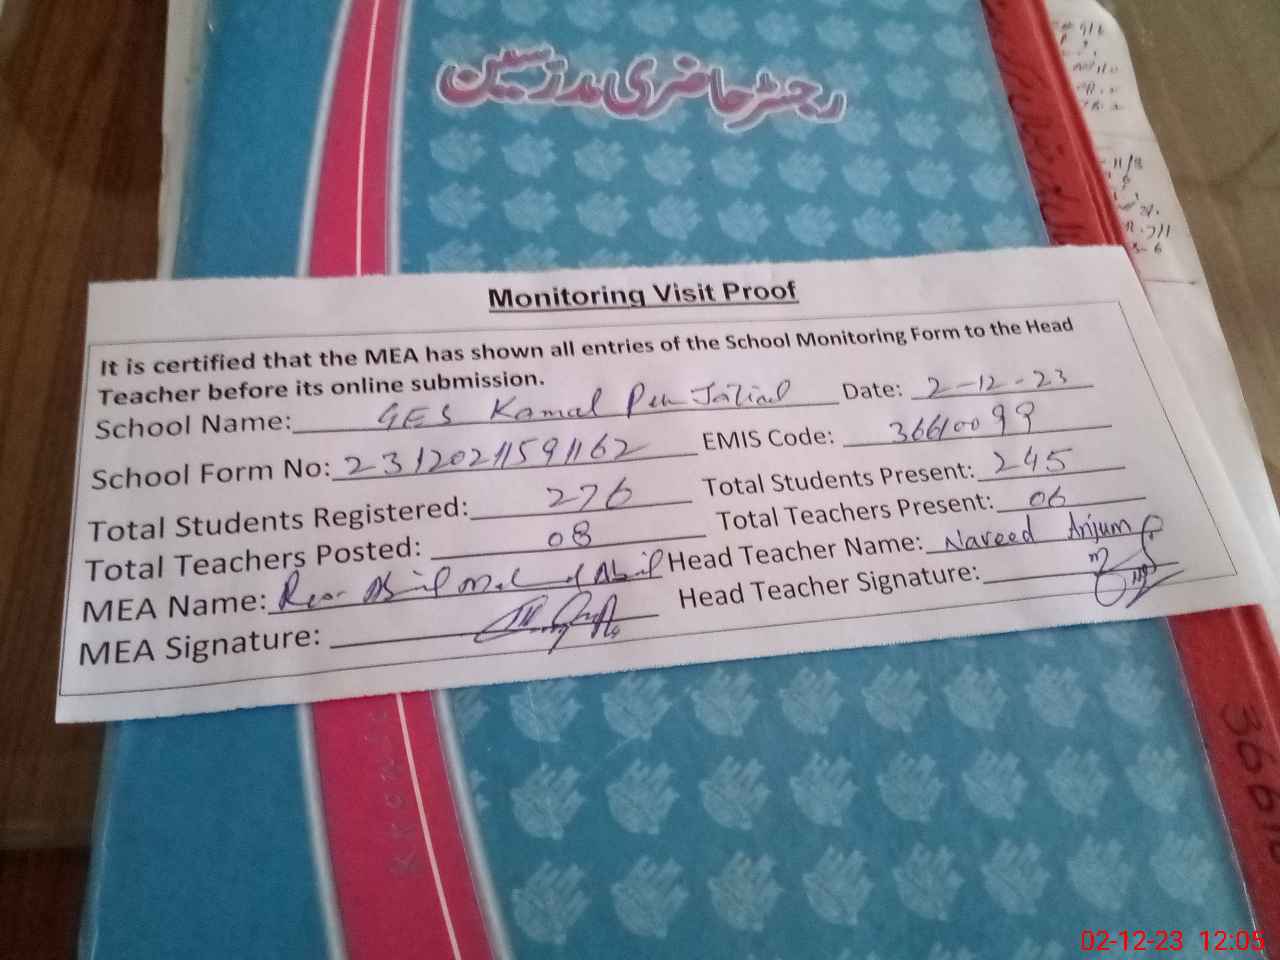 رجسٹر حاضری مدرسین
Monitoring Visit Proof
It is certified that the MEA has shown all entries of the School Monitoring Form to the Head
Teacher before its online submission.
School Name: GES Kamal Pur Date: 2-12-23
School Form No: 23120211591162 EMIS Code: 36610099
Total Students Registered: 276 Total Students Present: 245
Total Teachers Posted: 08 Total Teachers Present: 06
MEA Name: Head Teacher Name: Naveed Anjum
MEA Signature: Head Teacher Signature:
02-12-23 12:05